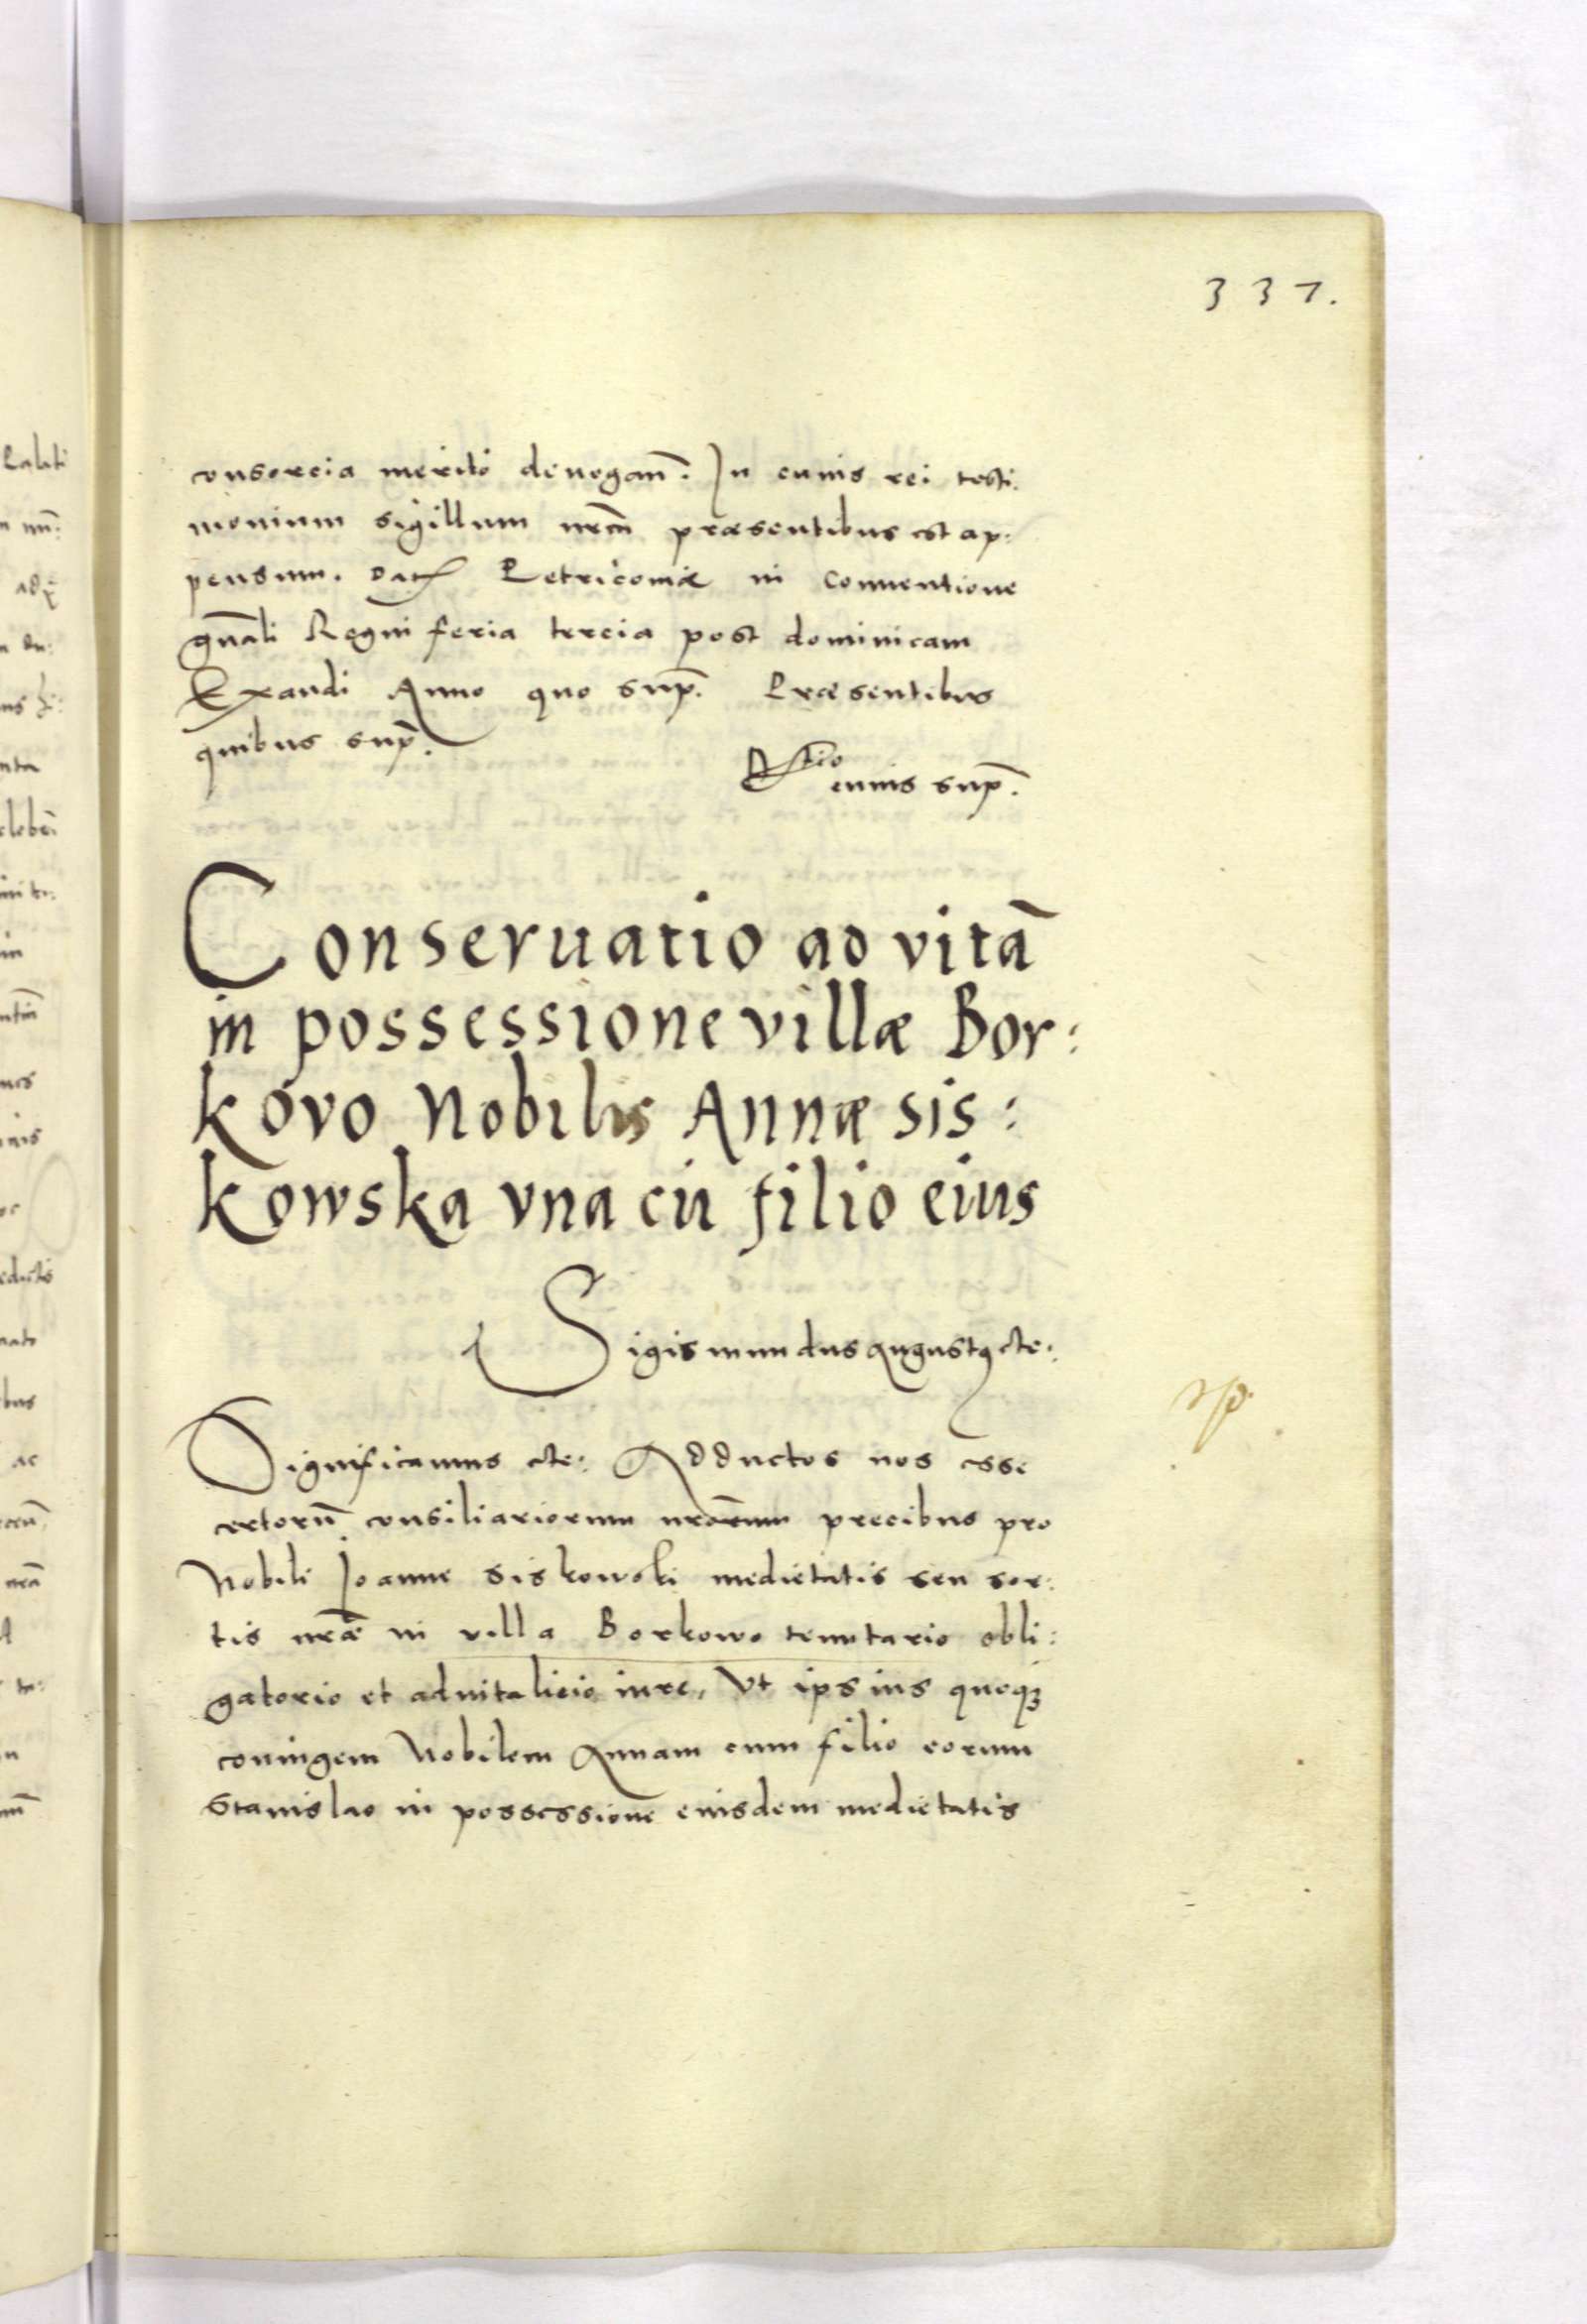 337.
consorcia merito denegant̄. In cuius rei testi:
monium sigillum nr̄m præsentibus est ap:
pensum. Dat Petricoviæ in Conuentione
gn̄ali Regni feria tercia post dominicam
Exaudi Anno quo sup̄. Præsentibus
quibus sup̄.
R̄tio
cuius sup̄.
Conseruatio ad vitā
in possessione villæ Bor:
kovo Nobilis Annæ Sis:
kowska vna cū filio eius
Sigismundus Augustꝯ etc:
Significamus etc: Adductos nos esse
certorū consiliariorum nr̄orum precibus pro
Nobili Joanne Siskowski medietatis seu sor:
tis nr̄æ in villa Borkowo tenutario obli:
gatorio et aduitalicio iure, Vt ipsius quoqꝫ
coniugem Nobilem Annam cum filio eorum
Stanislao in possessione eiusdem medietatis